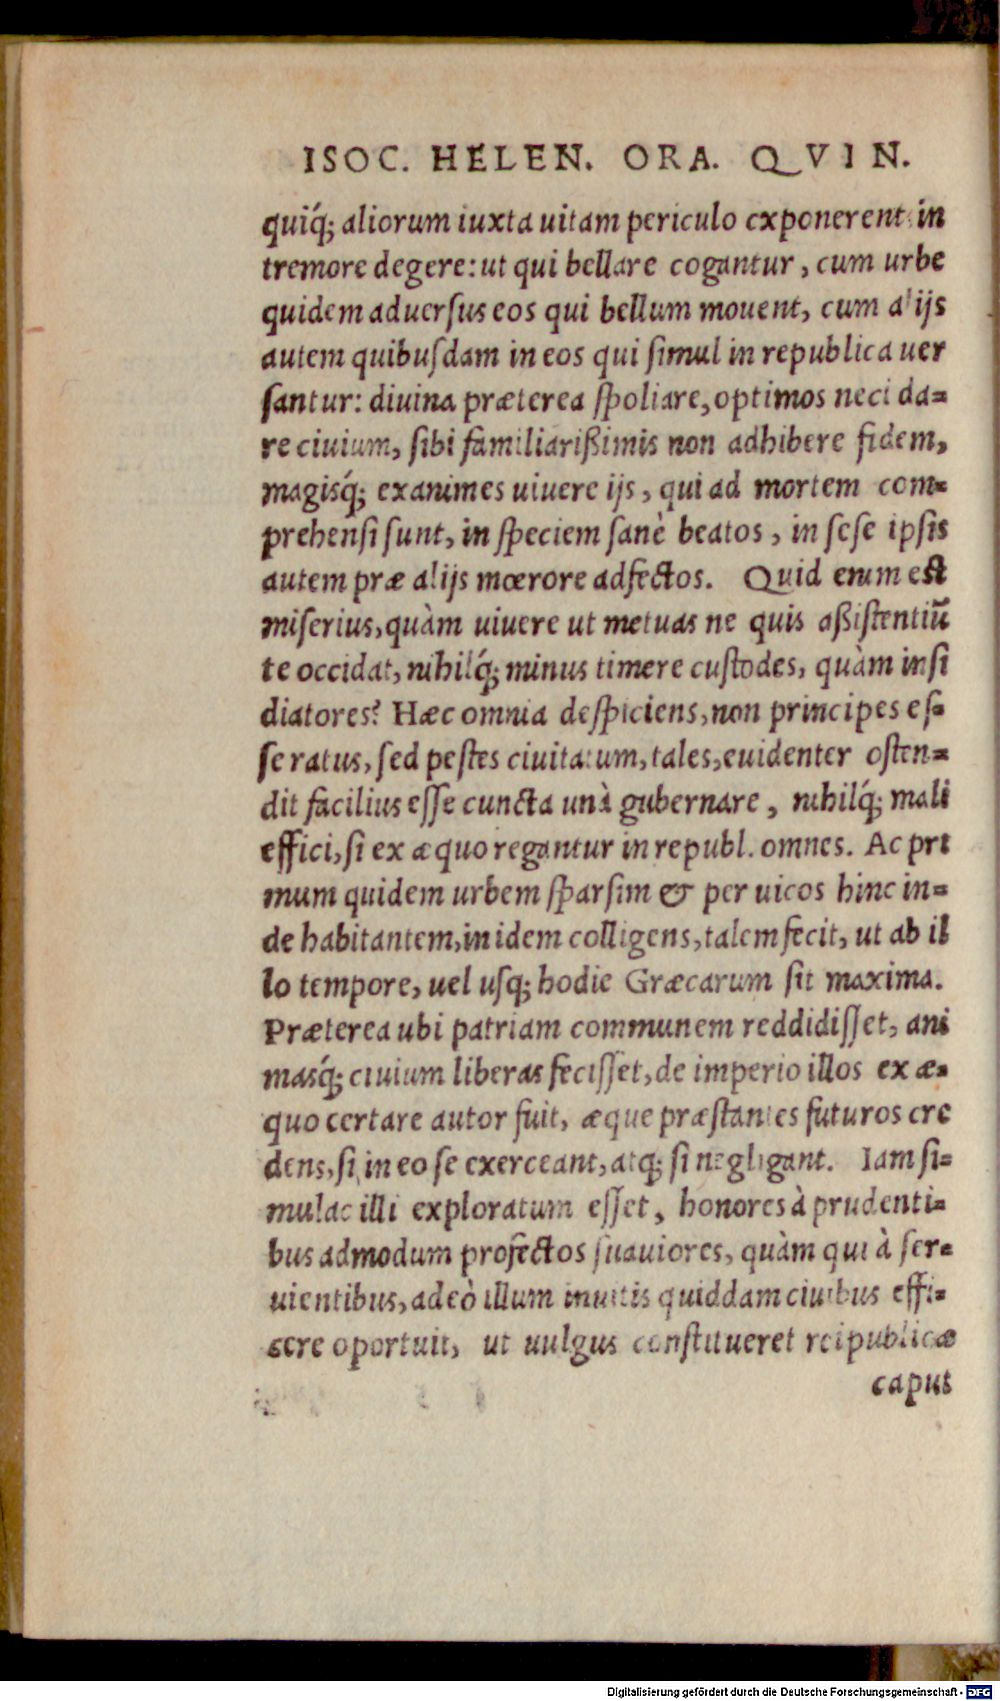 ISOC. HELEN. ORA. QVIN.
quiq́; aliorum iuxta uitam periculo exponerent in
tremore degere: ut qui bellare cogantur, cum urbe
quidem aduersus eos qui bellum mouent, cum alijs
autem quibusdam in eos qui simul in republica uer
santur: diuina præterea spoliare, optimos neci da=
re ciuium, sibi familiarißimis non adhibere fidem,
magisq́; exanimes uiuere ijs, qui ad mortem com=
prehensi sunt, in speciem sanè beatos, in sese ipsis
autem præ alijs mœrore adfectos. Quid enim est
miserius, quàm uiuere ut metuas ne quis aßistentiũ
te occidat, nihilq́; minus timere custodes, quàm insi
diatores? Hæc omnia despiciens, non principes es=
se ratus, sed pestes ciuitatum, tales, euidenter osten=
dit facilius esse cuncta unà gubernare, nihilq́; mali
effici, si ex æquo regantur in republ. omnes. Ac pri
mum quidem urbem sparsim & per uicos hinc in=
de habitantem, in idem colligens, talem fecit, ut ab il
lo tempore, uel usq; hodie Græcarum sit maxima.
Præterea ubi patriam communem reddidisset, ani
masq́; ciuium liberas fecisset, de imperio illos ex æ=
quo certare autor fuit, æque præstantes futuros cre
dens, si in eo se exerceant, atq; si negligant. Iam si=
mulac illi exploratum esset, honores à prudenti=
bus admodum profectos suauiores, quàm qui à ser=
uientibus, adeò illum inuitis quiddam ciuibus effi=
cere oportuit, ut uulgus constitueret reipublicæ
caput
Digitalisierung gefördert durch die Deutsche Forschungsgemeinschaft - DFG